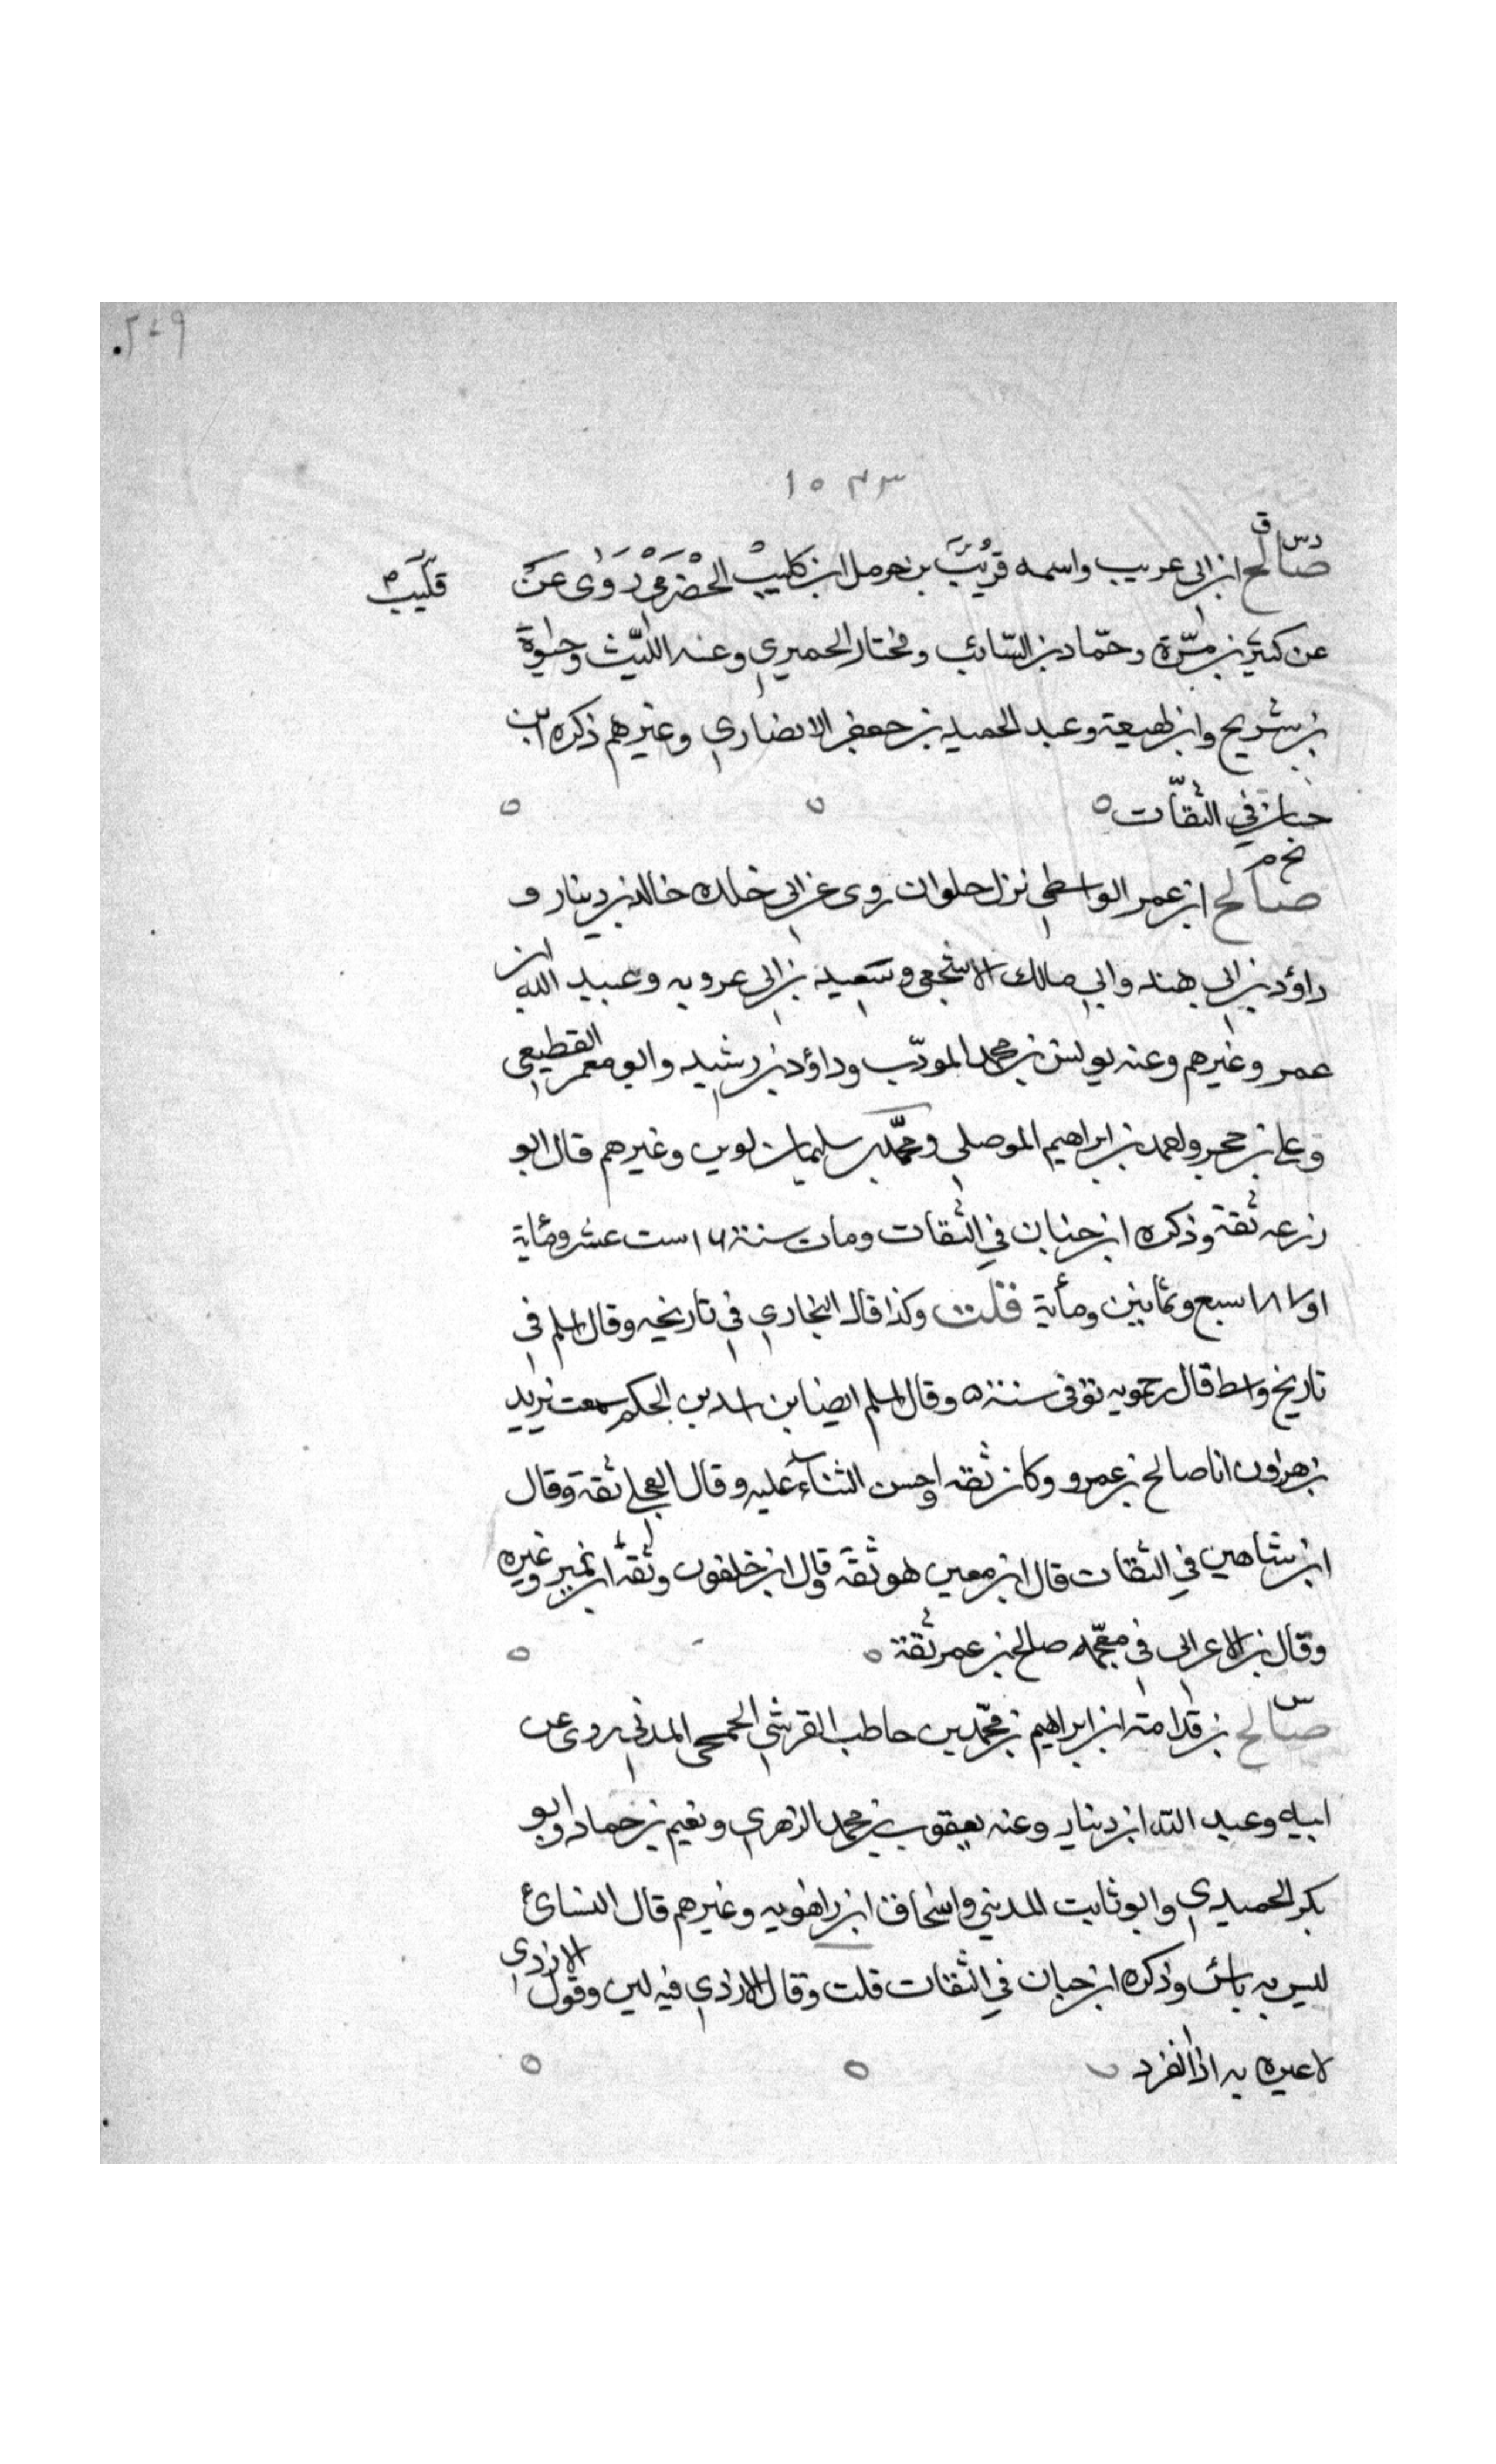 ٢٤٩
١٥٣٣
دس ق
صالح ابن ابى عريب واسمه قُرَيْبُ بن حرمل ابن كليب الحَضْرَمي رَوٰى عَن
قليب
عن كثير بن مرّة وحمّاد بن السّائب ومختار الحميري وعنه اللّيث وحيوة
بن شريح وابن لهيعة وعبد الحميد بن جعفر الانصاري وغيرهم ذكره ابن
حبان في الثقّات
خ م
صالح ابن عمر الواسطي نزل حلوان روى عن ابى خلده خالد بن دينار و
داؤد بن ابى هند وابي مالك الاشجعى وسعيد بن ابى عروبه وعبيد الله ابن
عمر وغيرهم وعنه يونس بن محمد المودّب وداؤد بن رشيد وابو معمر القطيعى
وعلى بن حجر واحمد بن ابراهيم الموصلي ومحمّد بن سليمان لوين وغيرهم قال ابو
زرعه ثقة وذكره ابن حبان في الثقات ومات سنة ١٦ ست عشر ومأية
او ١٨٧ سبع وثمانين ومأية قلت وكذا قال البخاري فى تاريخه وقال اسلم فى
تاريخ واسط قال رحمويه توفى سنة ٥ وقال اسلم ايضا بن اسد بن الحكم سمعت يزيد
بن هرون انا صالح بن عمرو وكان ثقه واحسن الثنآء عليه وقال العجلى ثقة وقال
ابن شاهين في الثقات قال ابن معين هو ثقة وقال ابن خلفون وثقه ابن نمير وغيره
وقال بن الاعرابى فى معجمه صالح بن عمر ثقة
س
صالح بن قدامة ابن ابراهيم بن محمّد بن حاطب القرشي الجمحى المدني روى عن
ابيه وعبد الله ابن دينار وعنه يعقوب بن محمد الزهري ونعيم بن حماد وابو
بكر الحميدي وابو ثابت المديني واسحاق ابن راهويه وغيرهم قال النسائ
ليس به باس وذكره ابن حبان في الثقات قلت وقال الازدي فيه لين وقول الازدى
لا عبره به اذا انفرد